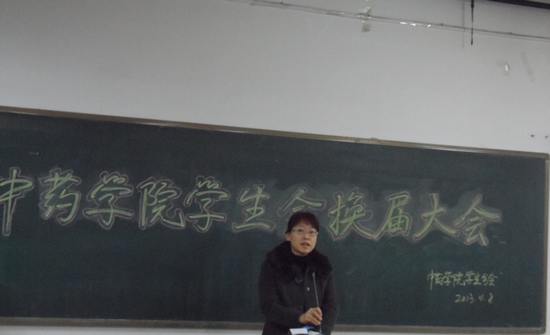 中药学院学生会换届大会
中药学院学生会
2013.11.8